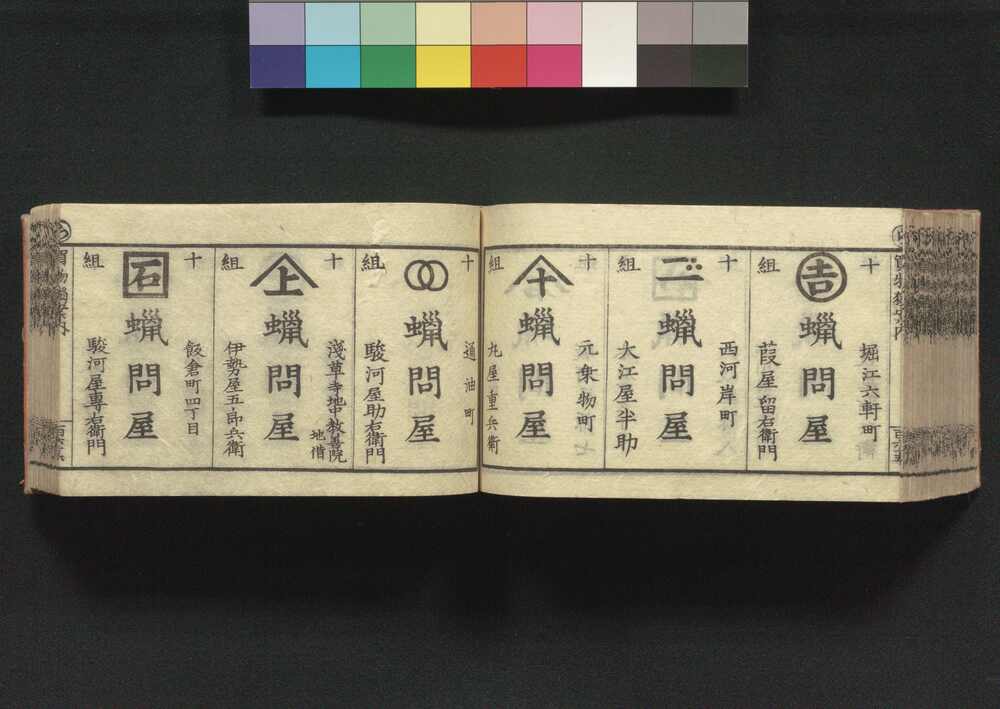 十組
堀江六軒町
吉
蝋問屋
葭屋留右衛門
十組
西河岸町
蝋問屋
大江屋半助
十組
元乗物町
十
蝋問屋
丸屋重兵衛
十組
通油町
蝋問屋
駿河屋助右衛門
十組
浅草寺地中教善院
地借
上
蝋問屋
伊勢屋五郎兵衛
十組
飯倉町四丁目
石
蝋問屋
駿河屋専右衛門